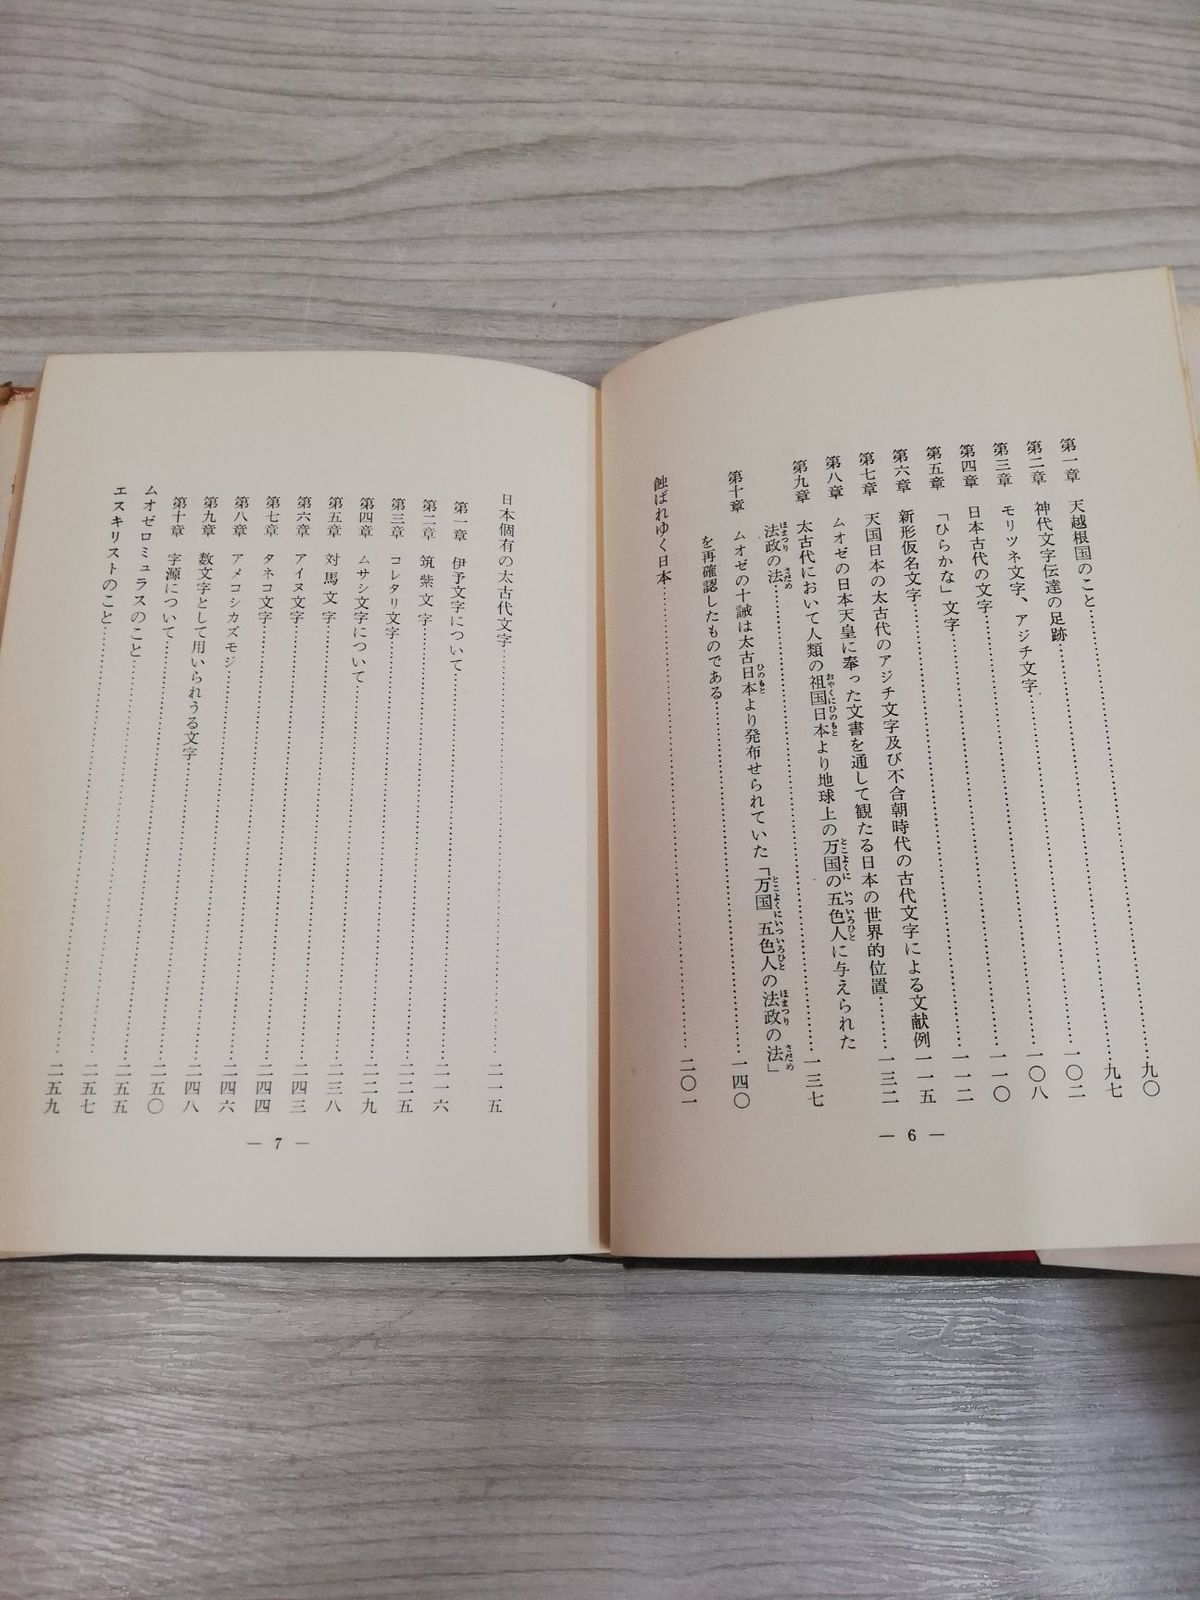 第一章　天越根国のこと……九〇
第二章　神代文字伝達の足跡……九七
第三章　モリツネ文字、アジチ文字……一〇二
第四章　日本古代の文字……一〇八
第五章　「ひらかな」文字……一一〇
第六章　新形仮名文字……一一二
第七章　天国日本の太古代のアジチ文字及び不合朝時代の古代文字による文献例……一一五
第八章　ムオゼの日本天皇に奉った文書を通して観たる日本の世界的位置……一三二
第九章　太古代において人類の祖国日本より地球上の万国の五色人に与えられた
法政の法……一三七
第十章　ムオゼの十誡は太古日本より発布せられていた「万国五色人の法政の法」
を再確認したものである……一四〇
蝕ばれゆく日本……二〇一
— 6 —
日本個有の太古代文字……二一五
第一章　伊予文字について……二一六
第二章　筑紫文字……二二五
第三章　コレタリ文字……二二九
第四章　ムサシ文字について……二三八
第五章　対馬文字……二四三
第六章　アイヌ文字……二四四
第七章　タネコ文字……二四六
第八章　アメコシカズモジ……二四八
第九章　数文字として用いられうる文字……二五〇
第十章　字源について……二五五
ムオゼロミュラスのこと……二五七
エスキリストのこと……二五九
— 7 —